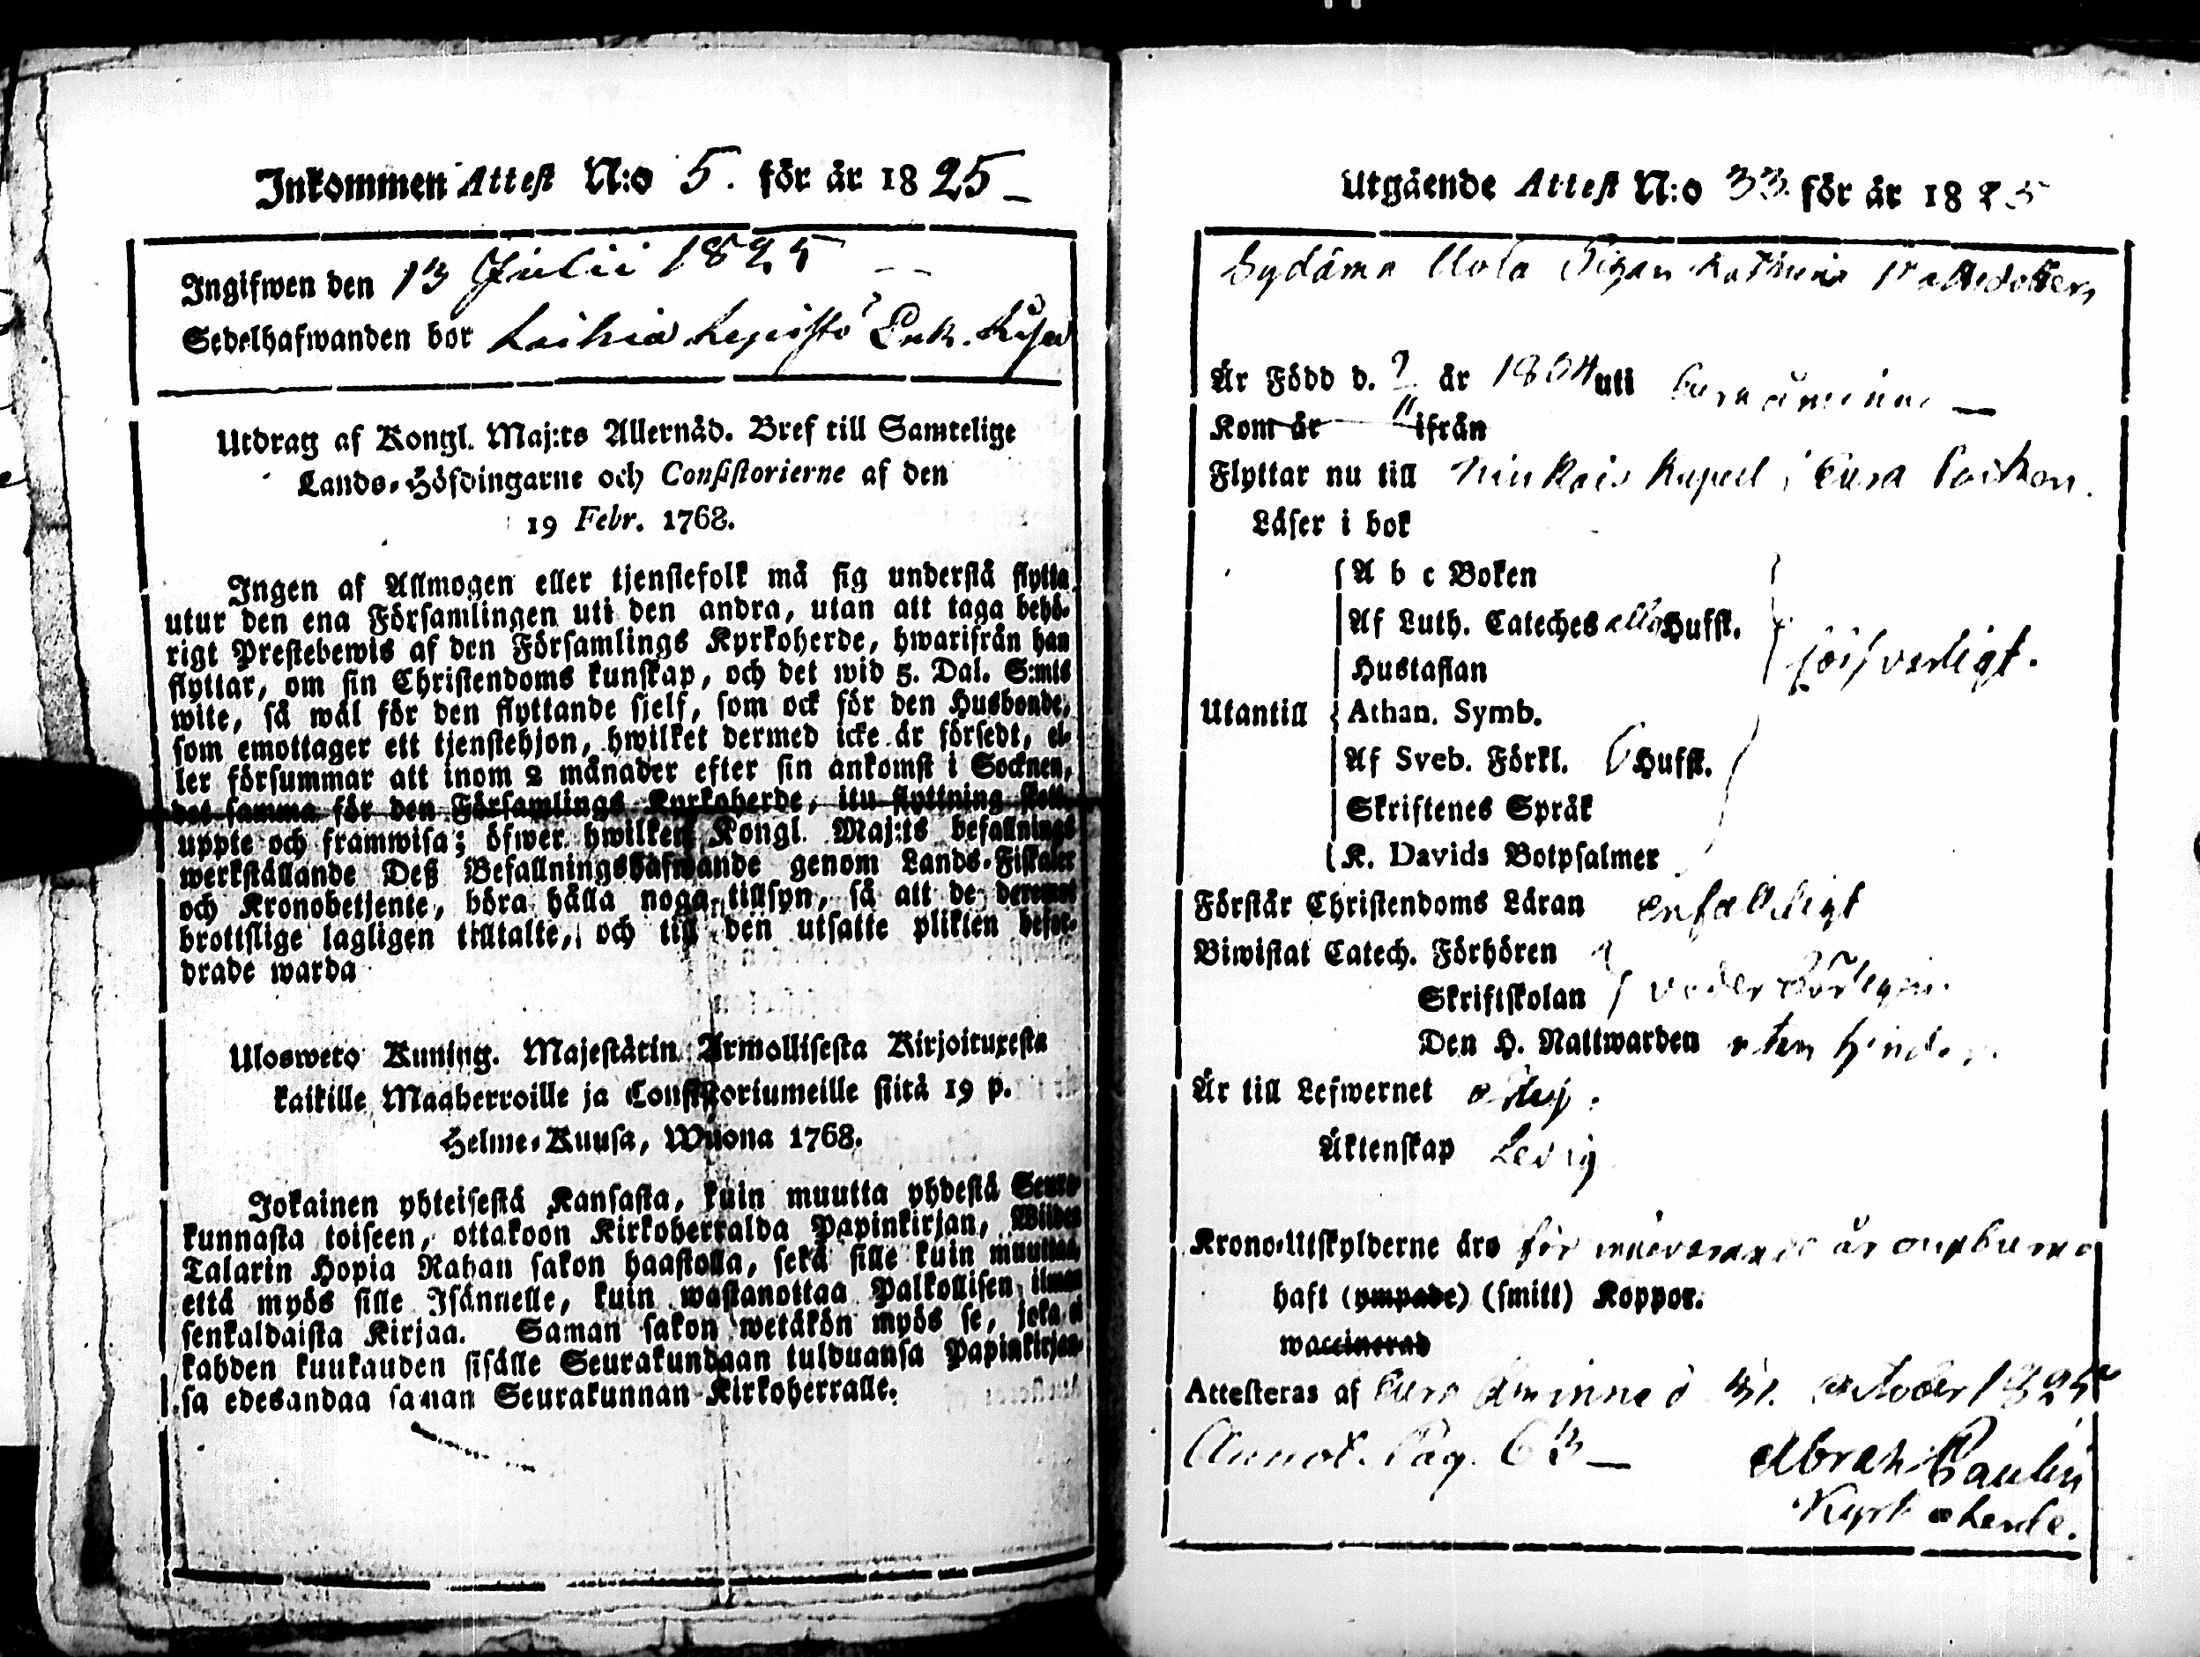 Inkommen Attest N:o 5. för år 1825
Ingifwen den 13 Julii 1825
Sedelhafwanden bor Laihia Enk.
Utdrag af Kongl. Maj:ts Allernåd. Bref till Samtelige
Lands-Höfdingarne och Consistorierne af den
19 Febr. 1768.
Ingen af Allmogen eller tjenstefolk må sig understå flytta
utur den ena Församlingen uti den andra, utan att taga behö-
rigt Prestebewis af den Församlings Kyrkoherde, hwarifrån han
flyttar, om sin Christendoms kunskap, och det wid 5. Dal. S:mts
wite, så wäl för den flyttande sjelf, som ock för den Husbonde,
som emottager ett tjenstehjon, hwilket dermed icke är försedt, el-
ler försummar att inom 2 månader efter sin ankomst i Socknen,
det samma för den Församlings Kyrkoherde, itu flyttning skett,
uppte och framwisa; öfwer hwilken Kongl. Maj:ts befallnings
werkställande Deß Befallningshafwande genom Lands-Fiskaler
och Kronobetjente, böra hålla noga tillsyn, så att de deremot
brottslige lagligen tilltalte, och till den utsatte plikten befor-
drade warda
Ulosweto Kuning. Majestätin Armollisesta Kirjoituxesta
kaikille Maaherroille ja Consistoriumeille siitä 19 p.
Helme-Kuusa, Wuona 1768.
Jokainen yhteisestä Kansasta, kuin muutta yhdestä Seura-
kunnasta toiseen, ottakoon Kirkoherralda Papinkirjan, Wiiden
Talarin Hopia Rahan sakon haastolla, sekä sille kuin muuttaa,
että myös sille Isännelle, kuin wastanottaa Palkollisen ilman
senkaldaista Kirjaa. Saman sakon wetäkön myös se, joka ei
kahden kuukauden sisälle Seurakundaan tulduansa Papinkirjan-
sa edesandaa saman Seurakunnan Kirkoherralle.
Utgående Attest N:o 33. för år 1825
Sydämn Uola Pigan
Är Född d. 9/11 år 1804 uti Eura åminne
Kom år ifrån
Flyttar nu till Kapell i Eura Socken.
Läser i bok
A b c Boken
Af Luth. Cateches alla Hufst.
Hustaflan
förswarligt.
Utantill Athan. Symb.
Af Sveb. Förkl. 6 Hufst.
Skriftenes Språk
K. Davids Botpsalmer
Förstår Christendoms Läran enfalldigt
Biwistat Catech. Förhören
Skriftskolan vederbörligen.
Den H. Nattwarden utan hinder.
Är till Lefwernet
Äktenskap Ledig
Krono-Utskylderne äro för innevarande år
haft (ympade) (smitt) Koppor.
waccinerad
Attesteras af Eura Åminne d 31. october 1825
Annot. Pag. 63
Abrah. Paulin
Kyrkoherde.